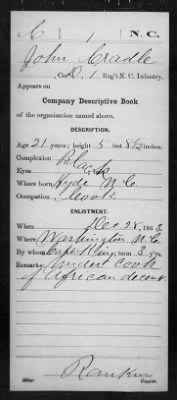 C | 1 | N.C.
John Cradle
Co. D, 1 Reg't N.C. Infantry.
Appears on
Company Descriptive Book
of the organization named above.
DESCRIPTION.
Age 21 years; height 5 feet 8½ inches.
Complexion Black
Eyes
Where born Hyde N.C.
Occupation Cook
ENLISTMENT.
When Dec 28, 1863
Where Washington N.C.
By whom Capt King; term 3 y'rs.
Remarks: Under Cook
of African decent
Rankin
Copyist.